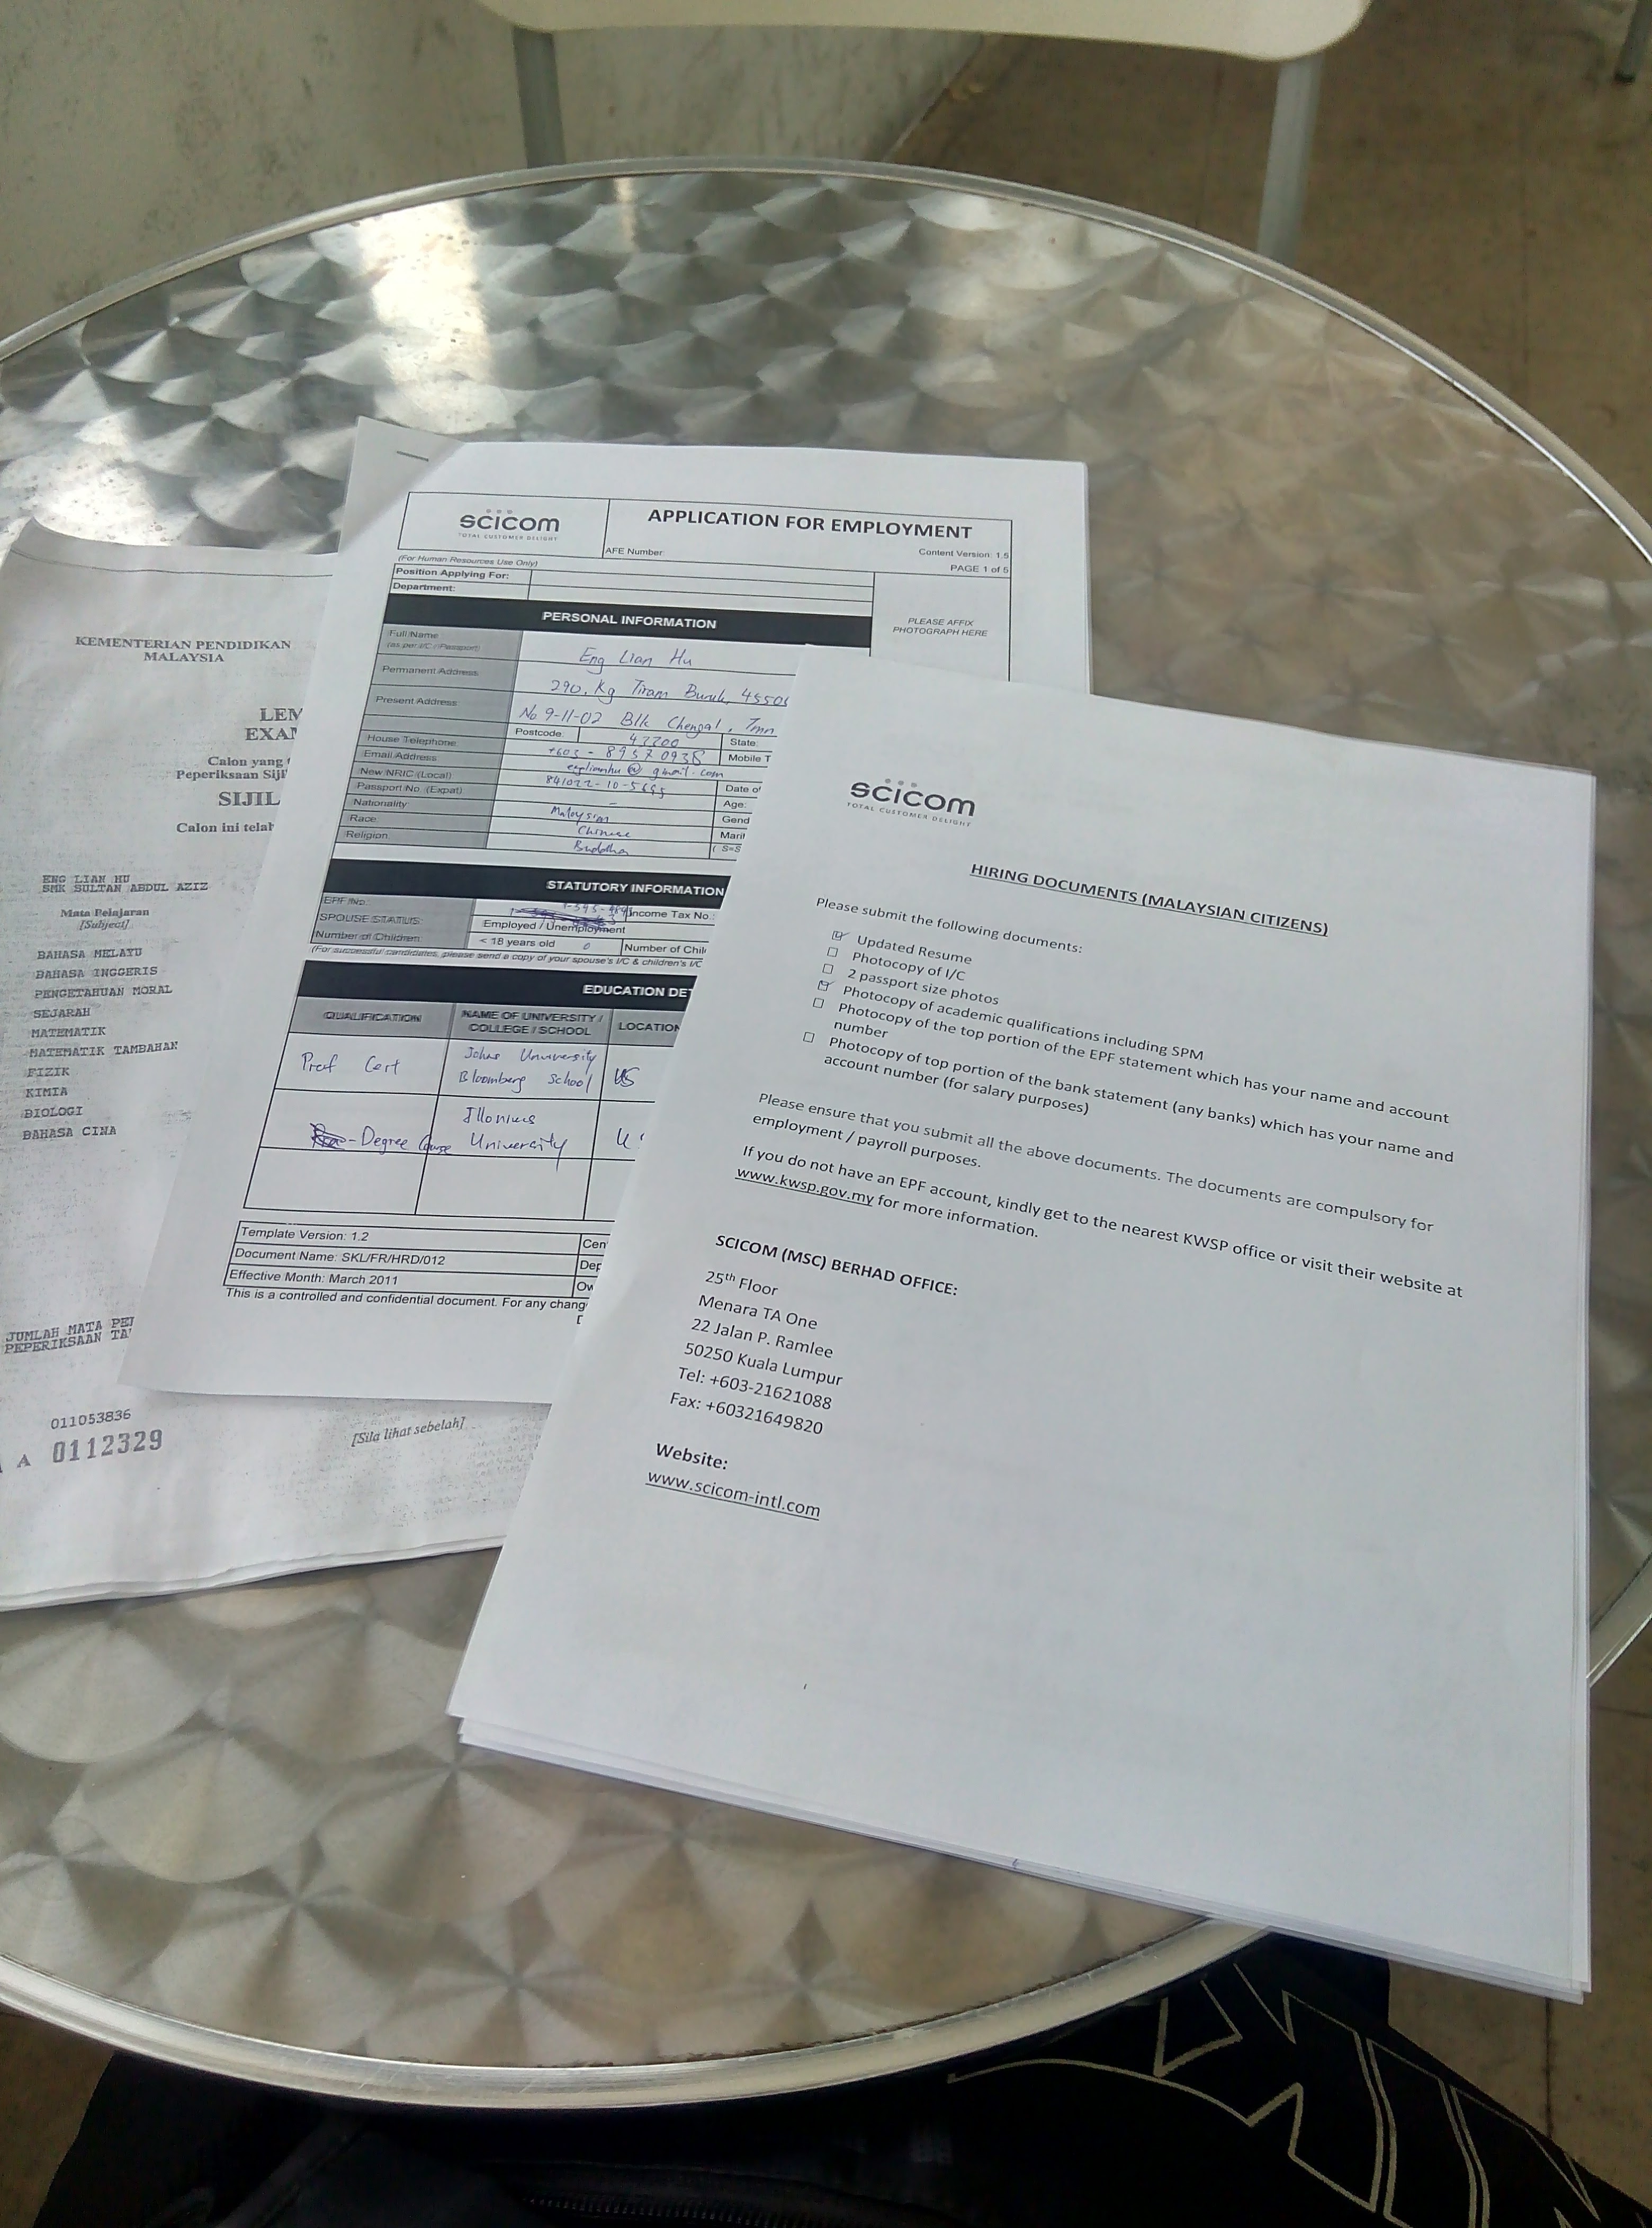 KEMENTERIAN PENDIDIKAN
MALAYSIA
LEM
EXAM
Calon yang
Peperiksaan Sijil
SIJIL
Calon ini telah
ENG LIAN HU
SMK SULTAN ABDUL AZIZ
Mata Pelajaran
[Subject]
BAHASA MELAYU
BAHASA INGGERIS
PENGETAHUAN MORAL
SEJARAH
MATEMATIK
MATEMATIK TAMBAHAN
FIZIK
KIMIA
BIOLOGI
BAHASA CINA
JUMLAH MATA PE
PEPERIKSAAN TA
011053836
A 0112329
[Sila lihat sebelah]
scicom
TOTAL CUSTOMER DELIGHT
APPLICATION FOR EMPLOYMENT
AFE Number:
Content Version: 1.5
(For Human Resources Use Only)
PAGE 1 of 5
Position Applying For:
Department:
PLEASE AFFIX
PHOTOGRAPH HERE
PERSONAL INFORMATION
Full Name
(as per I/C / Passport)
Eng Lian Hu
Permanent Address
290, Kg Tiram Buruk, 4550
Present Address
No 9-11-02 Blk Chengal, Tmn
Postcode: 43300 State:
House Telephone +603 - 8957 0938 Mobile T
Email Address englianhu @ gmail.com
New NRIC (Local) 841022-10-5665 Date of
Passport No. (Expat) - Age:
Nationality: Malaysian Gend
Race: Chinese Marit
Religion: Buddha ( S=S
STATUTORY INFORMATION
EPF No.: Income Tax No.:
SPOUSE STATUS: Employed / Unemployment
Number of Children: < 18 years old 0 Number of Chil
(For successful candidates, please send a copy of your spouse's I/C & children's I/C
EDUCATION DE
QUALIFICATION
NAME OF UNIVERSITY /
COLLEGE / SCHOOL
LOCATION
Prof Cert
Johns University
Bloomberg School
US
Degree Course
Illonius
University
U
Template Version: 1.2 Cen
Document Name: SKL/FR/HRD/012 Dep
Effective Month: March 2011 Ow
This is a controlled and confidential document. For any chang
scicom
TOTAL CUSTOMER DELIGHT
HIRING DOCUMENTS (MALAYSIAN CITIZENS)
Please submit the following documents:
Updated Resume
Photocopy of I/C
2 passport size photos
Photocopy of academic qualifications including SPM
Photocopy of the top portion of the EPF statement which has your name and account
number
Photocopy of top portion of the bank statement (any banks) which has your name and
account number (for salary purposes)
Please ensure that you submit all the above documents. The documents are compulsory for
employment / payroll purposes.
If you do not have an EPF account, kindly get to the nearest KWSP office or visit their website at
www.kwsp.gov.my for more information.
SCICOM (MSC) BERHAD OFFICE:
25th Floor
Menara TA One
22 Jalan P. Ramlee
50250 Kuala Lumpur
Tel: +603-21621088
Fax: +60321649820
Website:
www.scicom-intl.com